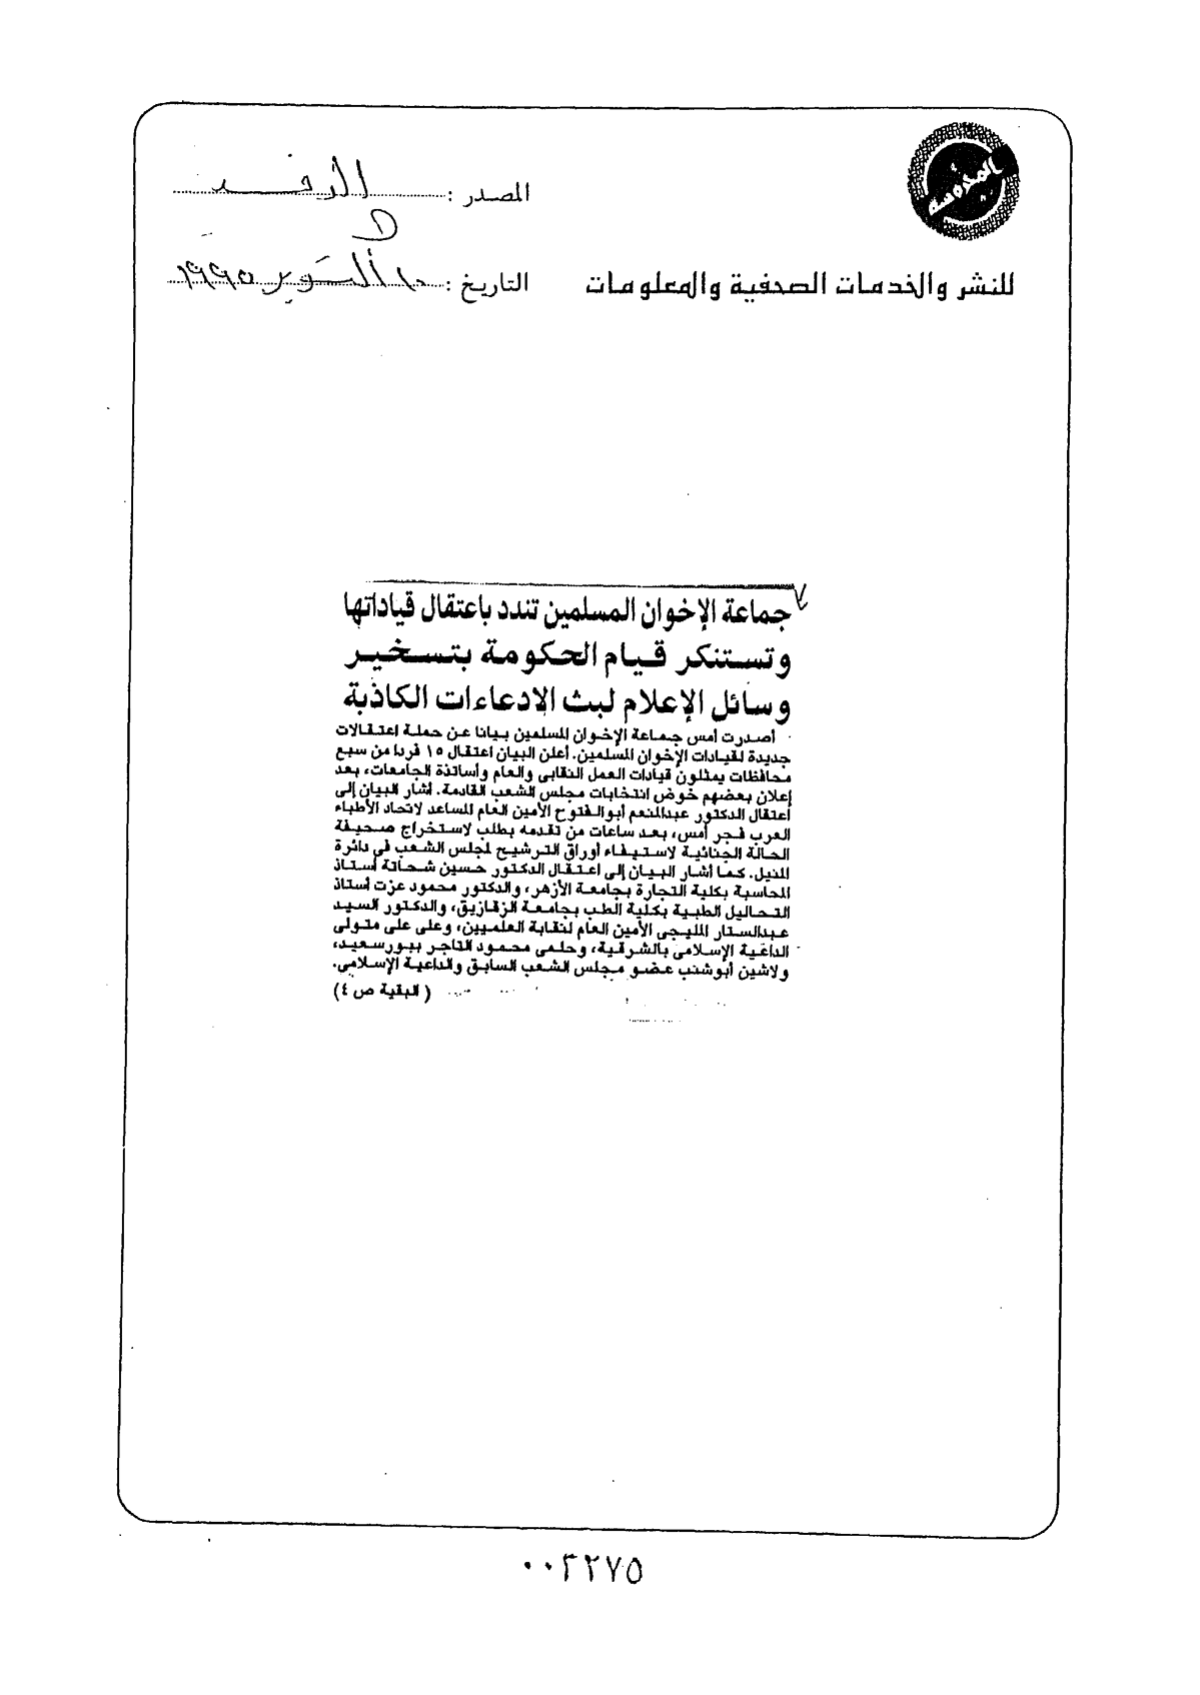 المحروسة
المصدر : الوفد
١
للنشر والخدمات الصحفية والمعلومات
التاريخ : ١٠ أكتوبر ١٩٩٥
جماعة الإخوان المسلمين تندد باعتقال قياداتها
وتستنكر قيام الحكومة بتسخير
وسائل الإعلام لبث الادعاءات الكاذبة
أصدرت أمس جماعة الإخوان المسلمين بيانا عن حملة اعتقالات
جديدة لقيادات الإخوان المسلمين. أعلن البيان اعتقال ١٥ فردا من سبع
محافظات يمثلون قيادات العمل النقابى والعام وأساتذة الجامعات، بعد
إعلان بعضهم خوض انتخابات مجلس الشعب القادمة. أشار البيان إلى
اعتقال الدكتور عبدالمنعم أبوالفتوح الأمين العام المساعد لاتحاد الأطباء
العرب فجر أمس، بعد ساعات من تقدمه بطلب لاستخراج صحيفة
الحالة الجنائية لاستيفاء أوراق الترشيح لمجلس الشعب فى دائرة
المنيل. كما أشار البيان إلى اعتقال الدكتور حسين شحاتة أستاذ
المحاسبة بكلية التجارة بجامعة الأزهر، والدكتور محمود عزت أستاذ
التحاليل الطبية بكلية الطب بجامعة الزقازيق، والدكتور السيد
عبدالستار المليجى الأمين العام لنقابة العلميين، وعلى على متولى
الداعية الإسلامى بالشرقية، وحلمى محمود التاجر ببورسعيد،
ولاشين أبوشنب عضو مجلس الشعب السابق والداعية الإسلامى.
( البقية ص ٤)
٠٠٣٢٧٥